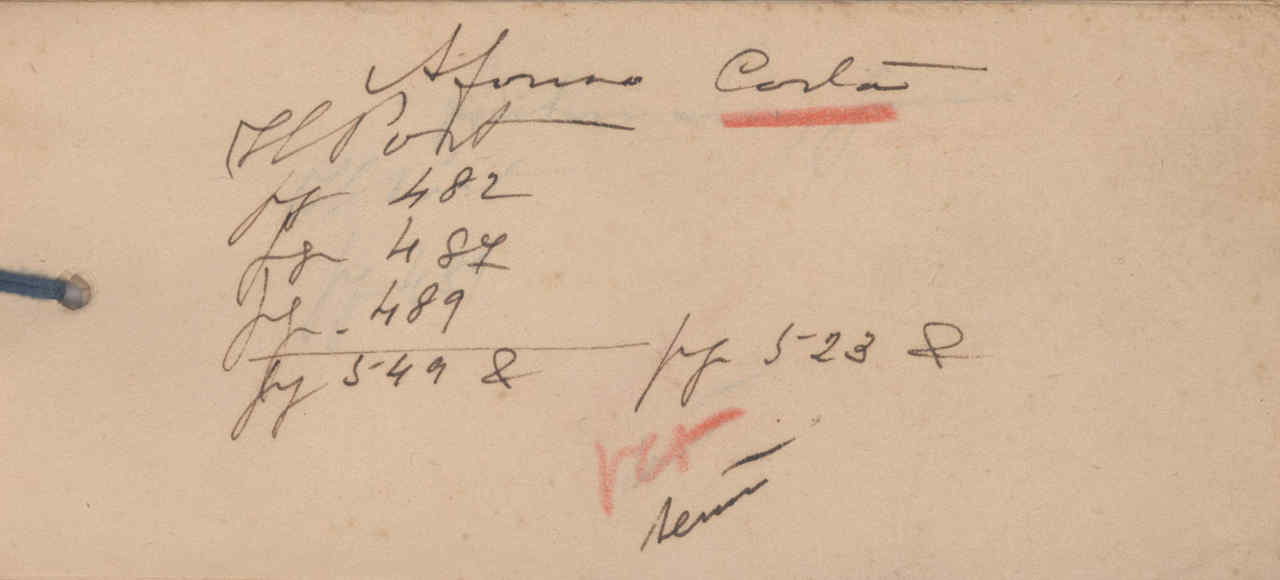 Afonso Costa
Il Port
pg 482
pg 487
pg. 489
pg 549 & pg 523 &
ver